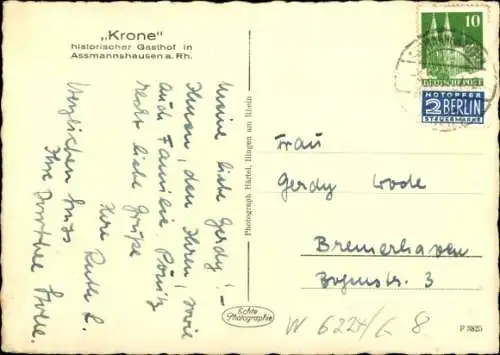 „Krone"
historischer Gasthof in
Assmannshausen a. Rh.
Meine liebe Gerdy! –
Ihnen, den Ihren, sowie
auch Familie
recht liebe Grüße
Ihre Ruth L.
Herzlichen Gruß
Ihre Dorothee
Photograph Härtel, Bingen am Rhein
Echte
Photographie
10
NOTOPFER
2 BERLIN
STEUERMARKE
Frau
Gerdy Wode
Bremerhaven
Bogenstr. 3
W 6224/G 8
P 3825